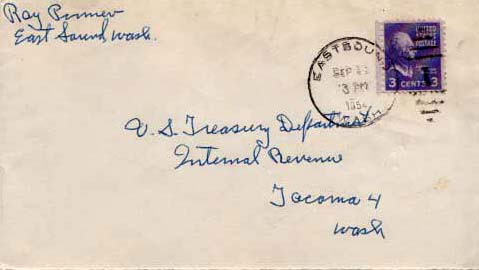 Ray
East Sound, Wash.
EASTSOUND
SEP
3 PM
1954
WASH.
UNITED
STATES
POSTAGE
3 CENTS 3
U.S. Treasury Department
Internal Revenue
Tacoma 4
Wash